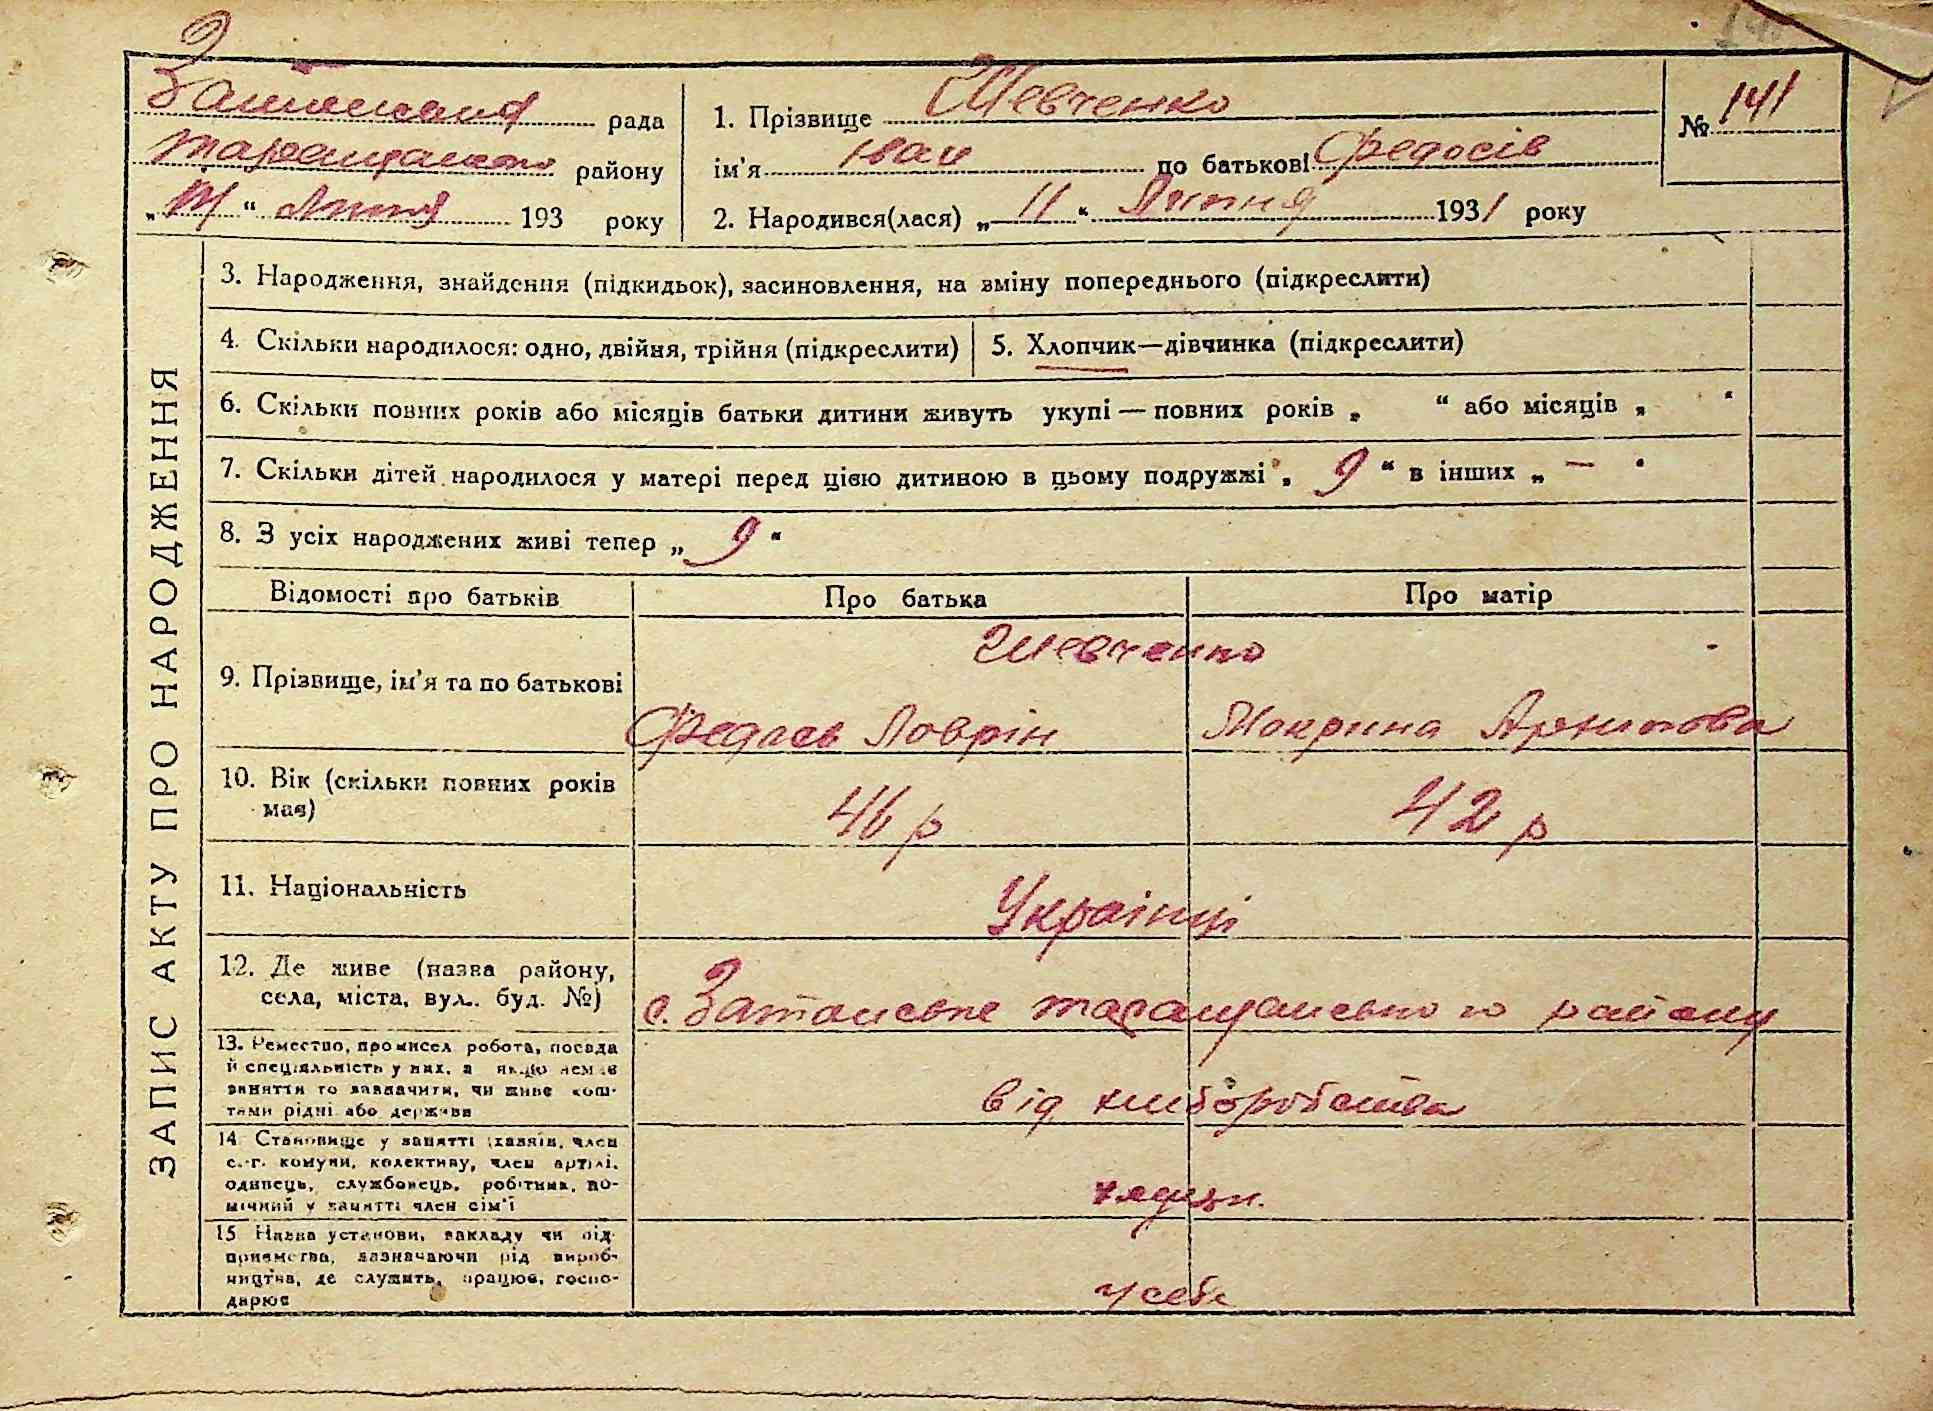 рада
району
193 року
1. Прізвище Шевченко
ім'я Іван по батькові Федосів
2. Народився(лася) „11“ Липня 1931 року
№ 141
ЗАПИС АКТУ ПРО НАРОДЖЕННЯ
3. Народження, знайдення (підкидьок), засиновлення, на зміну попереднього (підкреслити)
4. Скільки народилося: одно, двійня, трійня (підкреслити)
5. Хлопчик—дівчинка (підкреслити)
6. Скільки повних років або місяців батьки дитини живуть укупі — повних років „ “ або місяців „ “
7. Скільки дітей народилося у матері перед цією дитиною в цьому подружжі „ 9 “ в інших „ — “
8. З усіх народжених живі тепер „ 9 “
Відомості про батьків
Про батька
Про матір
9. Прізвище, ім'я та по батькові
Шевченко
Ловрін
Мокрина Архипова
10. Вік (скільки повних років
має)
46 р
42 р
11. Національність
Українці
12. Де живе (назва району,
села, міста, вул.. буд. №)
с. Затонське таращанського району
13. Ремество, промисел робота, посада
й спеціяльність у них, а якщо немає
заняття то зазначити, чи живе кош-
тами рідні або держави
від хліборобства
14. Становище у занятті (хазяїн, член
с.-г. комуни, колективу, член артілі,
одинець, службовець, робітник, по-
мічний у занятті член сім'ї
15 Назва установи, закладу чи під-
приємства, зазначаючи рід вироб-
ництва, де служить, працює, госпо-
дарює
у себе